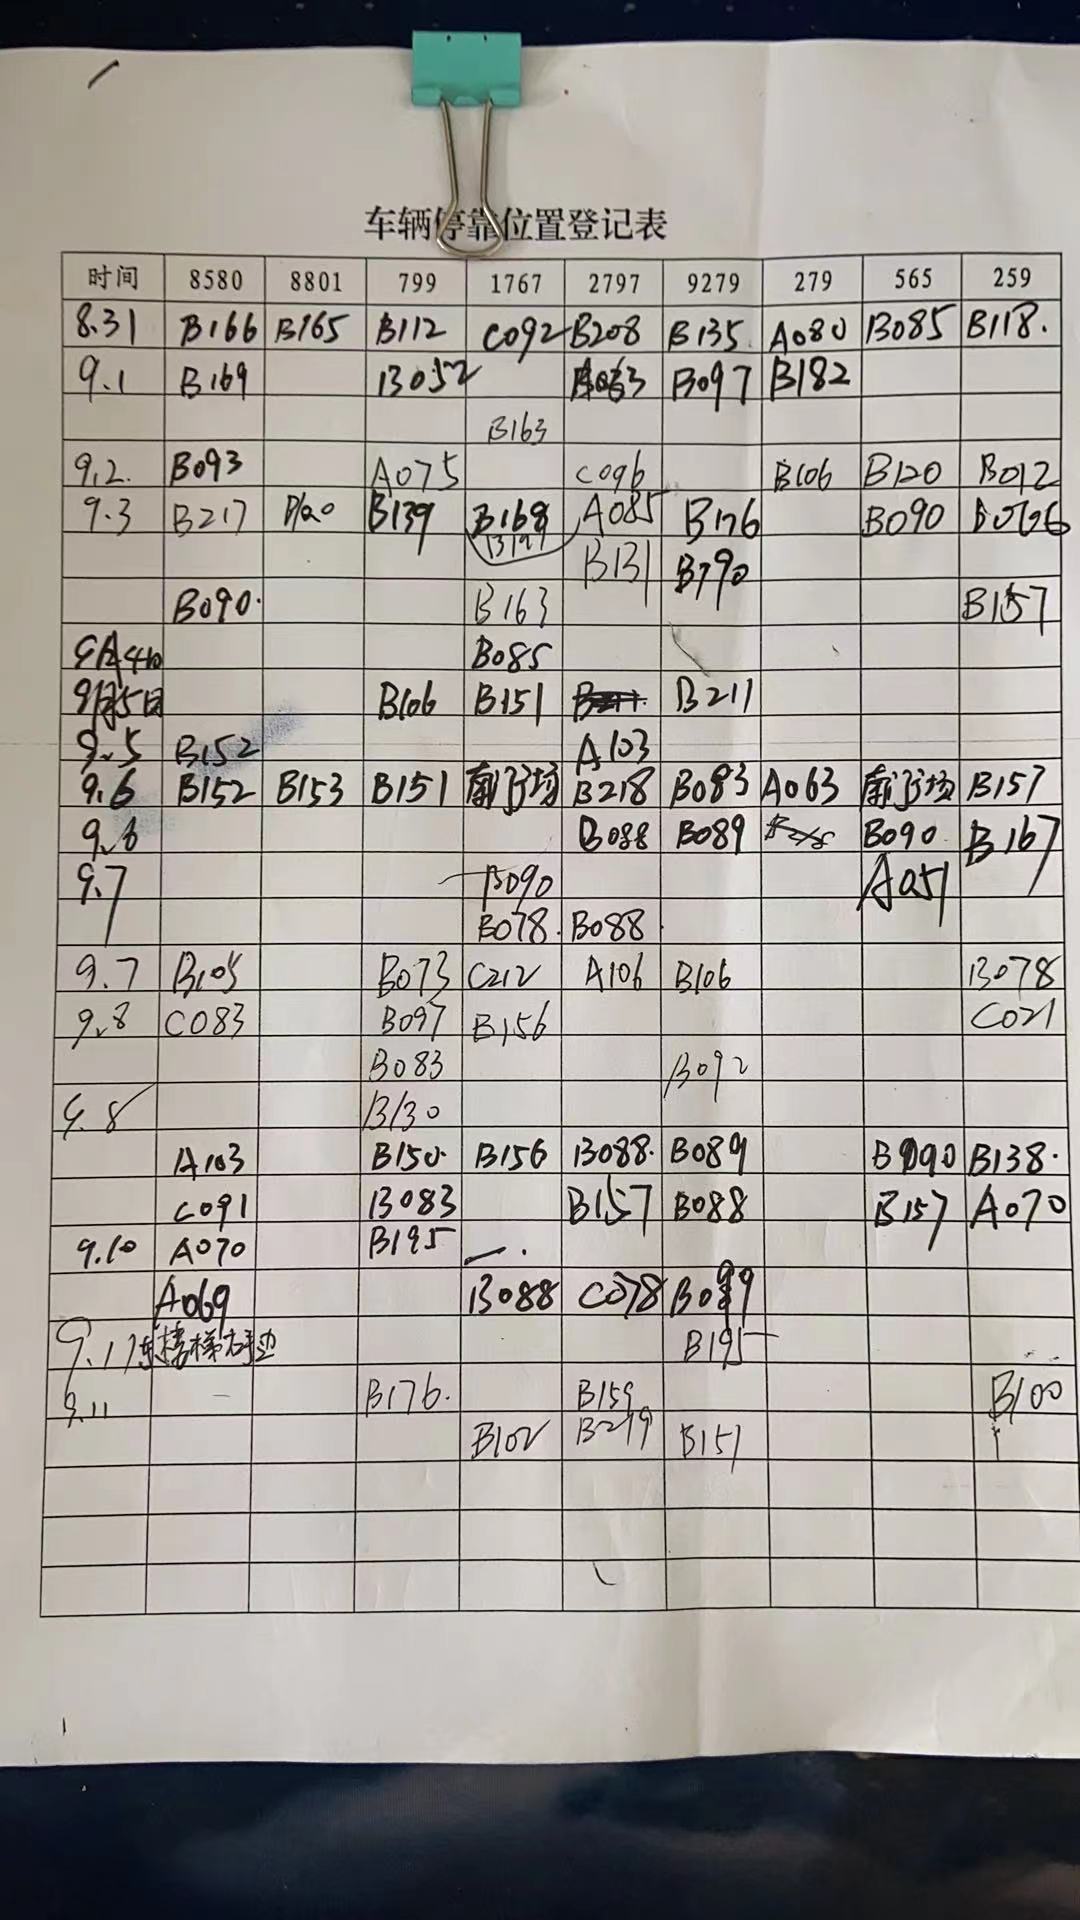 车辆停靠位置登记表
时间 8580 8801 799 1767 2797 9279 279 565 259
8.31 B166 B165 B112 C092 B208 B135 A080 B085 B118.
9.1 B169 B052 B097 B182
B163
9.2. B093 A075 C096 B106 B120 B012
9.3 B217 B139 B168 A085 B176 B090
B131 B790
B090. B163 B157
B085
9月5日 B106 B151 B211
9.5 B152 A103
9.6 B152 B153 B151 南门广场 B218 B083 A063 南门广场 B157
9.6 B088 B089 B090 B167
9.7 B090 A051
B078. B088.
9.7 B105 B073 C212 A106 B106 B078
9.8 C083 B097 B156 C021
B083 B092
9.8 B130
A103 B150. B156 B088. B089 B090 B138.
C091 B083 B157 B088 B157 A070
9.10 A070 B195
A069 B088 C078
9.11 东楼梯右手边 B195
9.11 B176. B159 B100
B102 B219 B151